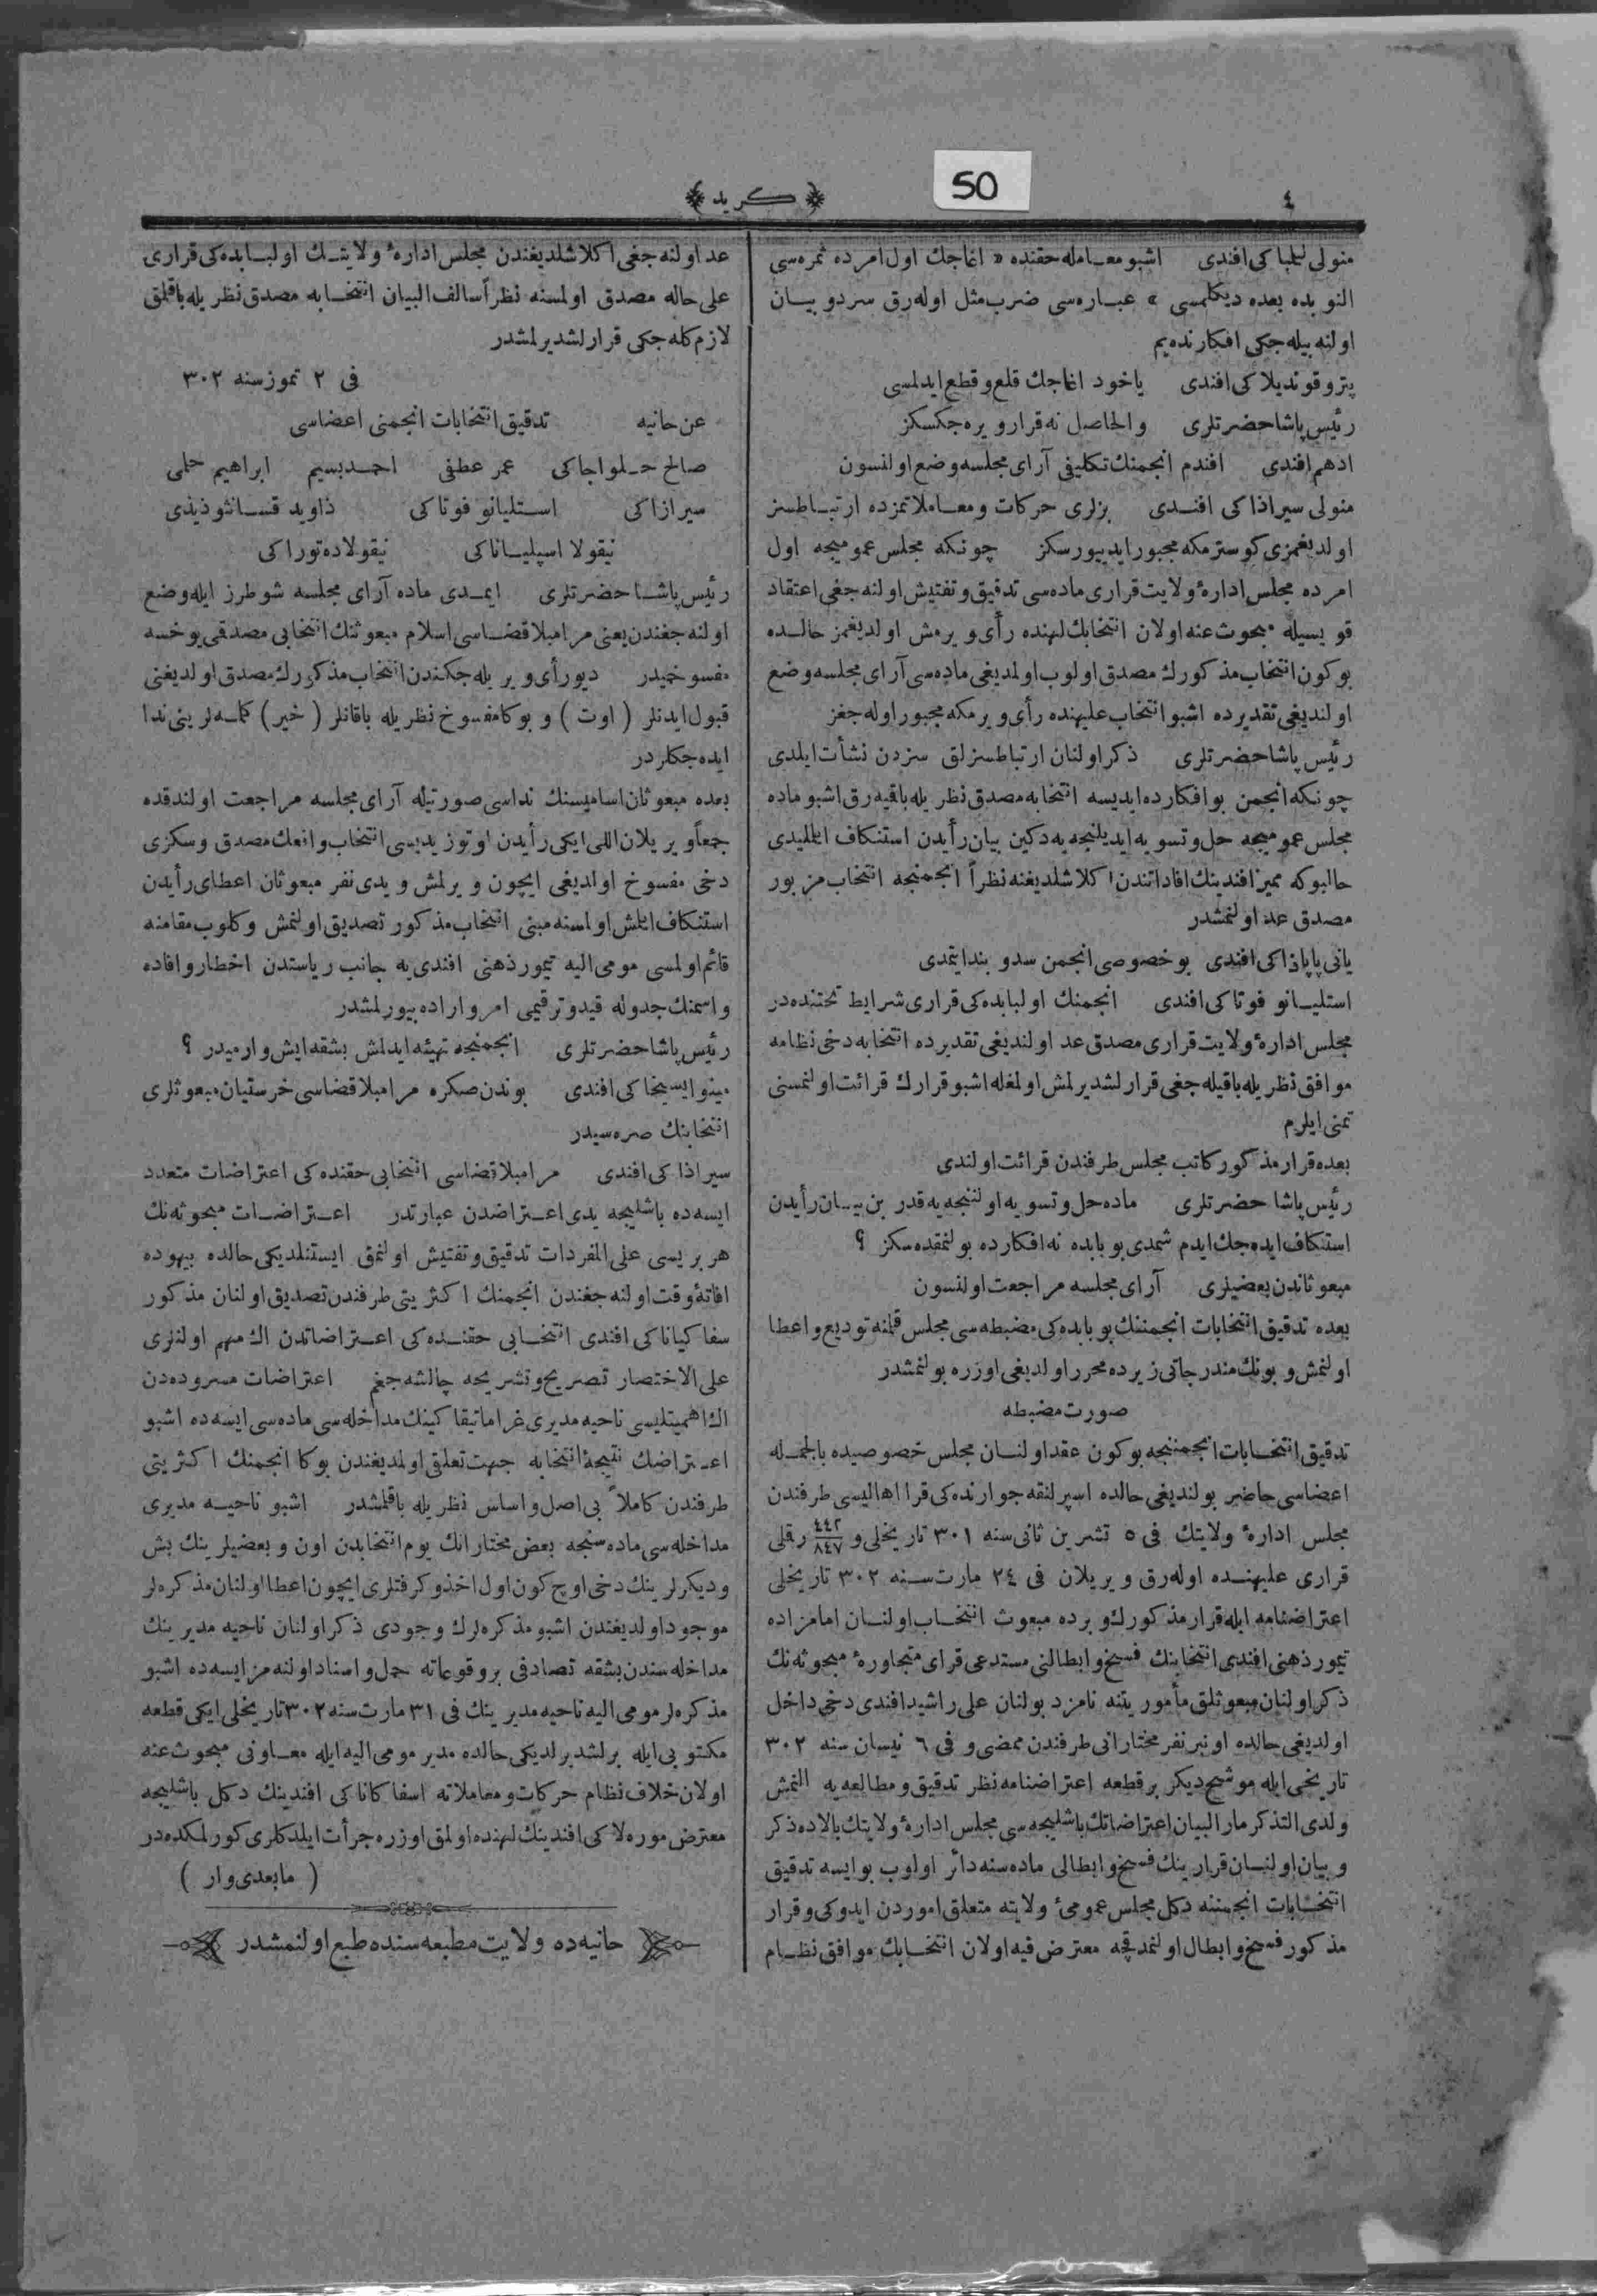 ٤
﴿ كريد ﴾
50
منولی لیلباكی افندی اشبو معامله حقنده « اغاجك اول امرده ثمره‌سی
النوبده بعده دیكلمسی » عباره‌سی ضرب مثل اوله‌رق سرد و بیان
اولنه بیله‌جكی افكارنده‌یم
پترو قوندیلاكی افندی یاخود اغاجك قلع و قطع ایدلمسی
رئیس پاشا حضرتلری والحاصل نه قرار ویره‌جكسكز
ادهم افندی افندم انجمنك تكلیفی آرای مجلسه وضع اولنسون
منولی سیراذاكی افندی بزلری حركات و معاملاتمزده ارتباطسز
اولدیغمزی كوسترمكه مجبور ایدییورسكز چونكه مجلس عمومیجه اول
امرده مجلس ادارهٔ ولایت قراری ماده‌سی تدقیق و تفتیش اولنه‌جغی اعتقاد
قویسیله مبحوث عنه اولان انتخابك لهنده رأی ویرمش اولدیغمز حالده
بوكون انتخاب مذكورك مصدق اولوب اولمدیغی ماده‌سی آرای مجلسه وضع
اولندیغی تقدیرده اشبو انتخاب علیهنده رأی ویرمكه مجبور اوله‌جغز
رئیس پاشا حضرتلری ذكر اولنان ارتباطسزلق سزدن نشأت ایلدی
چونكه انجمن بو افكارده ایدیسه انتخابه مصدق نظریله باقیه‌رق اشبو ماده
مجلس عمومیجه حل و تسویه ایدیلنجه‌یه دكین بیان رأیدن استنكاف ایتملیدی
حالبوكه ممیز افندینك افاداتندن اكلاشلدیغنه نظراً انجمنجه انتخاب مزبور
مصدق عد اولنمشدر
یانی پاپاذاكی افندی بو خصوصی انجمن سد و بند ایتمدی
استلیانو فوتاكی افندی انجمنك اولبابده‌كی قراری شرایط تحتنده‌در
مجلس ادارهٔ ولایت قراری مصدق عد اولندیغی تقدیرده انتخابه دخی نظامه
موافق نظریله باقیله‌جغی قرارلشدیرلمش اولمغله اشبو قرارك قرائت اولنمسنی
تمنی ایلرم
بعده قرار مذكور كاتب مجلس طرفندن قرائت اولندی
رئیس پاشا حضرتلری ماده حل و تسویه اولننجه‌یه قدر بن بیان رأیدن
استنكاف ایده‌جك ایدم شمدی بو بابده نه افكارده بولنمقده‌سكز ؟
مبعوثاندن بعضیلری آرای مجلسه مراجعت اولنسون
بعده تدقیق انتخابات انجمننك بو بابده‌كی مضبطه‌سی مجلس قلمنه تودیع و اعطا
اولنمش و بونك مندرجاتی زیرده محرر اولدیغی اوزره بولنمشدر
صورت مضبطه
تدقیق انتخابات انجمننجه بوكون عقد اولنان مجلس خصوصیده بالجمله
اعضاسی حاضر بولندیغی حالده اسپرلنقه جوارنده‌كی قرا اهالیسی طرفندن
مجلس ادارهٔ ولایتك فی ٥ تشرین ثانی سنه ٣٠١ تاریخلی و ٤٤٢/٨٤٧ رقملی
قراری علیهنده اوله‌رق ویریلان فی ٢٤ مارت سنه ٣٠٢ تاریخلی
اعتراضنامه ایله قرار مذكورك و برده مبعوث انتخاب اولنان امامزاده
تیمور ذهنی افندی انتخابنك فسخ و ابطالنی مستدعی قرای متجاورهٔ مبحوثه‌نك
ذكر اولنان مبعوثلق مأموریتنه نامزد بولنان علی راشید افندی دخی داخل
اولدیغی حالده اونبر نفر مختارانی طرفندن ممضی و فی ٦ نیسان سنه ٣٠٢
تاریخی ایله موشح دیكر بر قطعه اعتراضنامه نظر تدقیق و مطالعه‌یه النمش
ولدی التذكر مار البیان اعتراضاتك باشلیجه‌سی مجلس ادارهٔ ولایتك بالاده ذكر
و بیان اولنان قرارینك فسخ و ابطالی ماده‌سنه دائر اولوب بو ایسه تدقیق
انتخابات انجمننه دكل مجلس عمومیٔ ولایته متعلق اموردن ایدوكی و قرار
مذكور فسخ و ابطال اولنمدقجه معترض فیه اولان انتخابك موافق نظام
عد اولنه‌جغی اكلاشلدیغندن مجلس ادارهٔ ولایتك اولبابده‌كی قراری
علی حاله مصدق اولمسنه نظراً سالف البیان انتخابه مصدق نظریله باقلمق
لازم كله‌جكی قرارلشدیرلمشدر
فی ٢ تموز سنه ٣٠٢
عن حانیه تدقیق انتخابات انجمنی اعضاسی
صالح حلمواجاكی عمر عطفی احمد بسیم ابراهیم حلمی
سیرازاكی استلیانو فوتاكی ذاوید قسانثوذیذی
نیقولا اسپلیاناكی نیقولا ده‌توراكی
رئیس پاشا حضرتلری ایمدی ماده آرای مجلسه شو طرز ایله وضع
اولنه‌جغندن یعنی مرامبلا قضاسی اسلام مبعوثنك انتخابی مصدقمی یوخسه
مفسوخمیدر دیو رأی ویریله‌جكندن انتخاب مذكورك مصدق اولدیغنی
قبول ایدنلر ( اوت ) و بوكا مفسوخ نظریله باقانلر ( خیر ) كلمه‌لرینی ندا
ایده‌جكلردر
بعده مبعوثان اسامیسنك نداسی صورتیله آرای مجلسه مراجعت اولندقده
جمعاً ویریلان اللی ایكی رأیدن اوتوز یدیسی انتخاب واقعك مصدق و سكزی
دخی مفسوخ اولدیغی ایچون ویرلمش و یدی نفر مبعوثان اعطای رأیدن
استنكاف ایلمش اولمسنه مبنی انتخاب مذكور تصدیق اولنمش و كلوب مقامنه
قائم اولمسی مومی الیه تیمور ذهنی افندی‌یه جانب ریاستدن اخطار و افاده
و اسمنك جدوله قید و ترقیمی امر و اراده بیورلمشدر
رئیس پاشا حضرتلری انجمنجه تهیئه ایدلمش بشقه ایش وارمیدر ؟
مینو ایسیخاكی افندی بوندن صكره مرامبلا قضاسی خرستیان مبعوثلری
انتخابنك صره‌سیدر
سیراذاكی افندی مرامبلا قضاسی انتخابی حقنده‌كی اعتراضات متعدد
ایسه‌ده باشلیجه یدی اعتراضدن عبارتدر اعتراضات مبحوثه‌نك
هر بریسی علی المفردات تدقیق و تفتیش اولنمق ایستنلدیكی حالده بیهوده
افاتهٔ وقت اولنه‌جغندن انجمنك اكثریتی طرفندن تصدیق اولنان مذكور
سفاكیاناكی افندی انتخابی حقنده‌كی اعتراضاتدن اك مهم اولنلری
علی الاختصار تصریح و تشریحه چالشه‌جغم اعتراضات مسروده‌دن
اك اهمیتلیسی ناحیه مدیری غراماتیقاكینك مداخله‌سی ماده‌سی ایسه‌ده اشبو
اعتراضك نتیجهٔ انتخابه جهت تعلقی اولمدیغندن بوكا انجمنك اكثریتی
طرفندن كاملاً بی اصل و اساس نظریله باقلمشدر اشبو ناحیه مدیری
مداخله‌سی ماده‌سنجه بعض مختارانك یوم انتخابدن اون و بعضیلرینك بش
و دیكرلرینك دخی اوچ كون اول اخذ و كرفتلری ایچون اعطا اولنان مذكره‌لر
موجود اولدیغندن اشبو مذكره‌لرك وجودی ذكر اولنان ناحیه مدیرینك
مداخله‌سندن بشقه تصادفی بر وقوعاته حمل و اسناد اولنه‌مز ایسه‌ده اشبو
مذكره‌لر مومی الیه ناحیه مدیرینك فی ٣١ مارت سنه ٣٠٢ تاریخلی ایكی قطعه
مكتوبی ایله برلشدیرلدیكی حالده مدیر مومی الیه ایله معاونی مبحوث عنه
اولان خلاف نظام حركات و معاملاته اسفاكاناكی افندینك دكل باشلیجه
معترض موره‌لاكی افندینك لهنده اولمق اوزره جرأت ایلدكلری كورلمكده‌در
( مابعدی وار )
حانیه‌ده ولایت مطبعه‌سنده طبع اولنمشدر